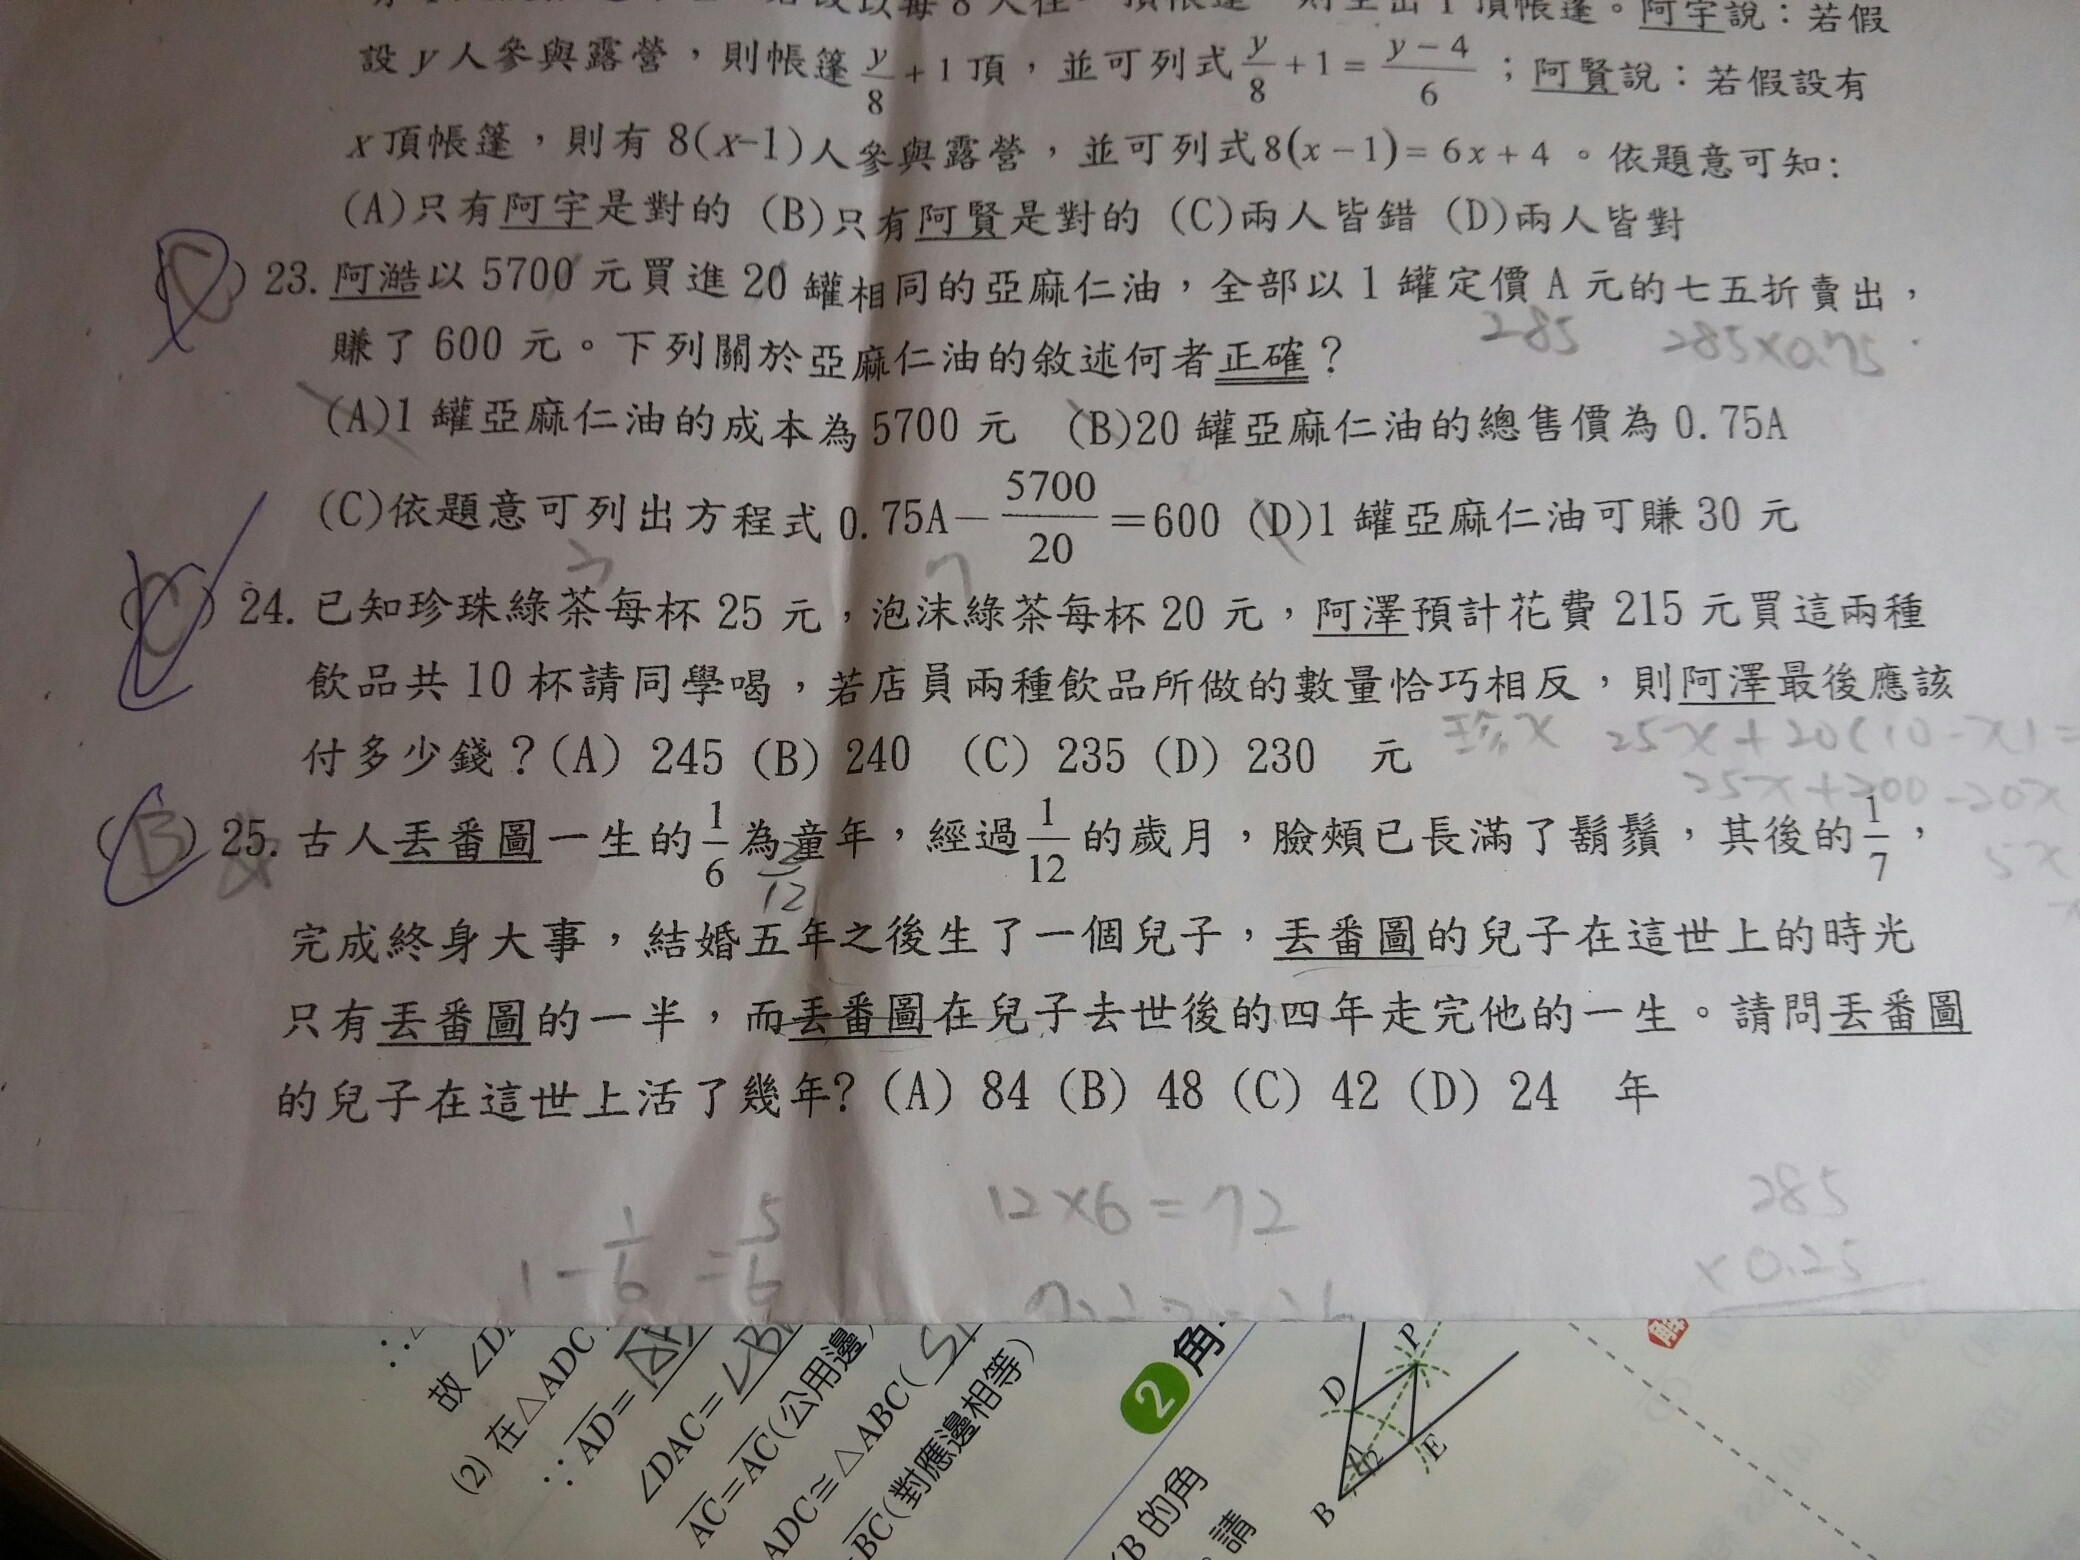 設y人參與露營，則帳篷 y/8 + 1 頂，並可列式 y/8 + 1 = (y − 4)/6 ；阿賢說：若假設有
x頂帳篷，則有 8(x−1)人參與露營，並可列式8(x − 1) = 6x + 4 。依題意可知:
(A)只有阿宇是對的 (B)只有阿賢是對的 (C)兩人皆錯 (D)兩人皆對
(C) 23. 阿澔以 5700 元買進 20 罐相同的亞麻仁油，全部以 1 罐定價 A 元的七五折賣出，
賺了 600 元。下列關於亞麻仁油的敘述何者正確？
285 285×0.75
(A)1 罐亞麻仁油的成本為 5700 元 (B)20 罐亞麻仁油的總售價為 0.75A
(C)依題意可列出方程式 0.75A − 5700/20 = 600 (D)1 罐亞麻仁油可賺 30 元
3 7
(C) 24. 已知珍珠綠茶每杯 25 元，泡沫綠茶每杯 20 元，阿澤預計花費 215 元買這兩種
飲品共 10 杯請同學喝，若店員兩種飲品所做的數量恰巧相反，則阿澤最後應該
付多少錢？(A) 245 (B) 240 (C) 235 (D) 230 元
珍x 25x+20(10-x)=
25x+200-20x
5x
(B) 25. 古人丟番圖一生的 1/6 為童年，經過 1/12 的歲月，臉頰已長滿了鬍鬚，其後的 1/7，
2/12
完成終身大事，結婚五年之後生了一個兒子，丟番圖的兒子在這世上的時光
只有丟番圖的一半，而丟番圖在兒子去世後的四年走完他的一生。請問丟番圖
的兒子在這世上活了幾年? (A) 84 (B) 48 (C) 42 (D) 24 年
1 - 1/6 = 5/6
12×6=72
285
×0.25
故∠D
(2) 在△ADC
∵ AD=
∠DAC=
AC=AC(公用邊)
ADC≅△ABC(
BC(對應邊相等)
2 角
B 的角
請
D P E B 1 2
解